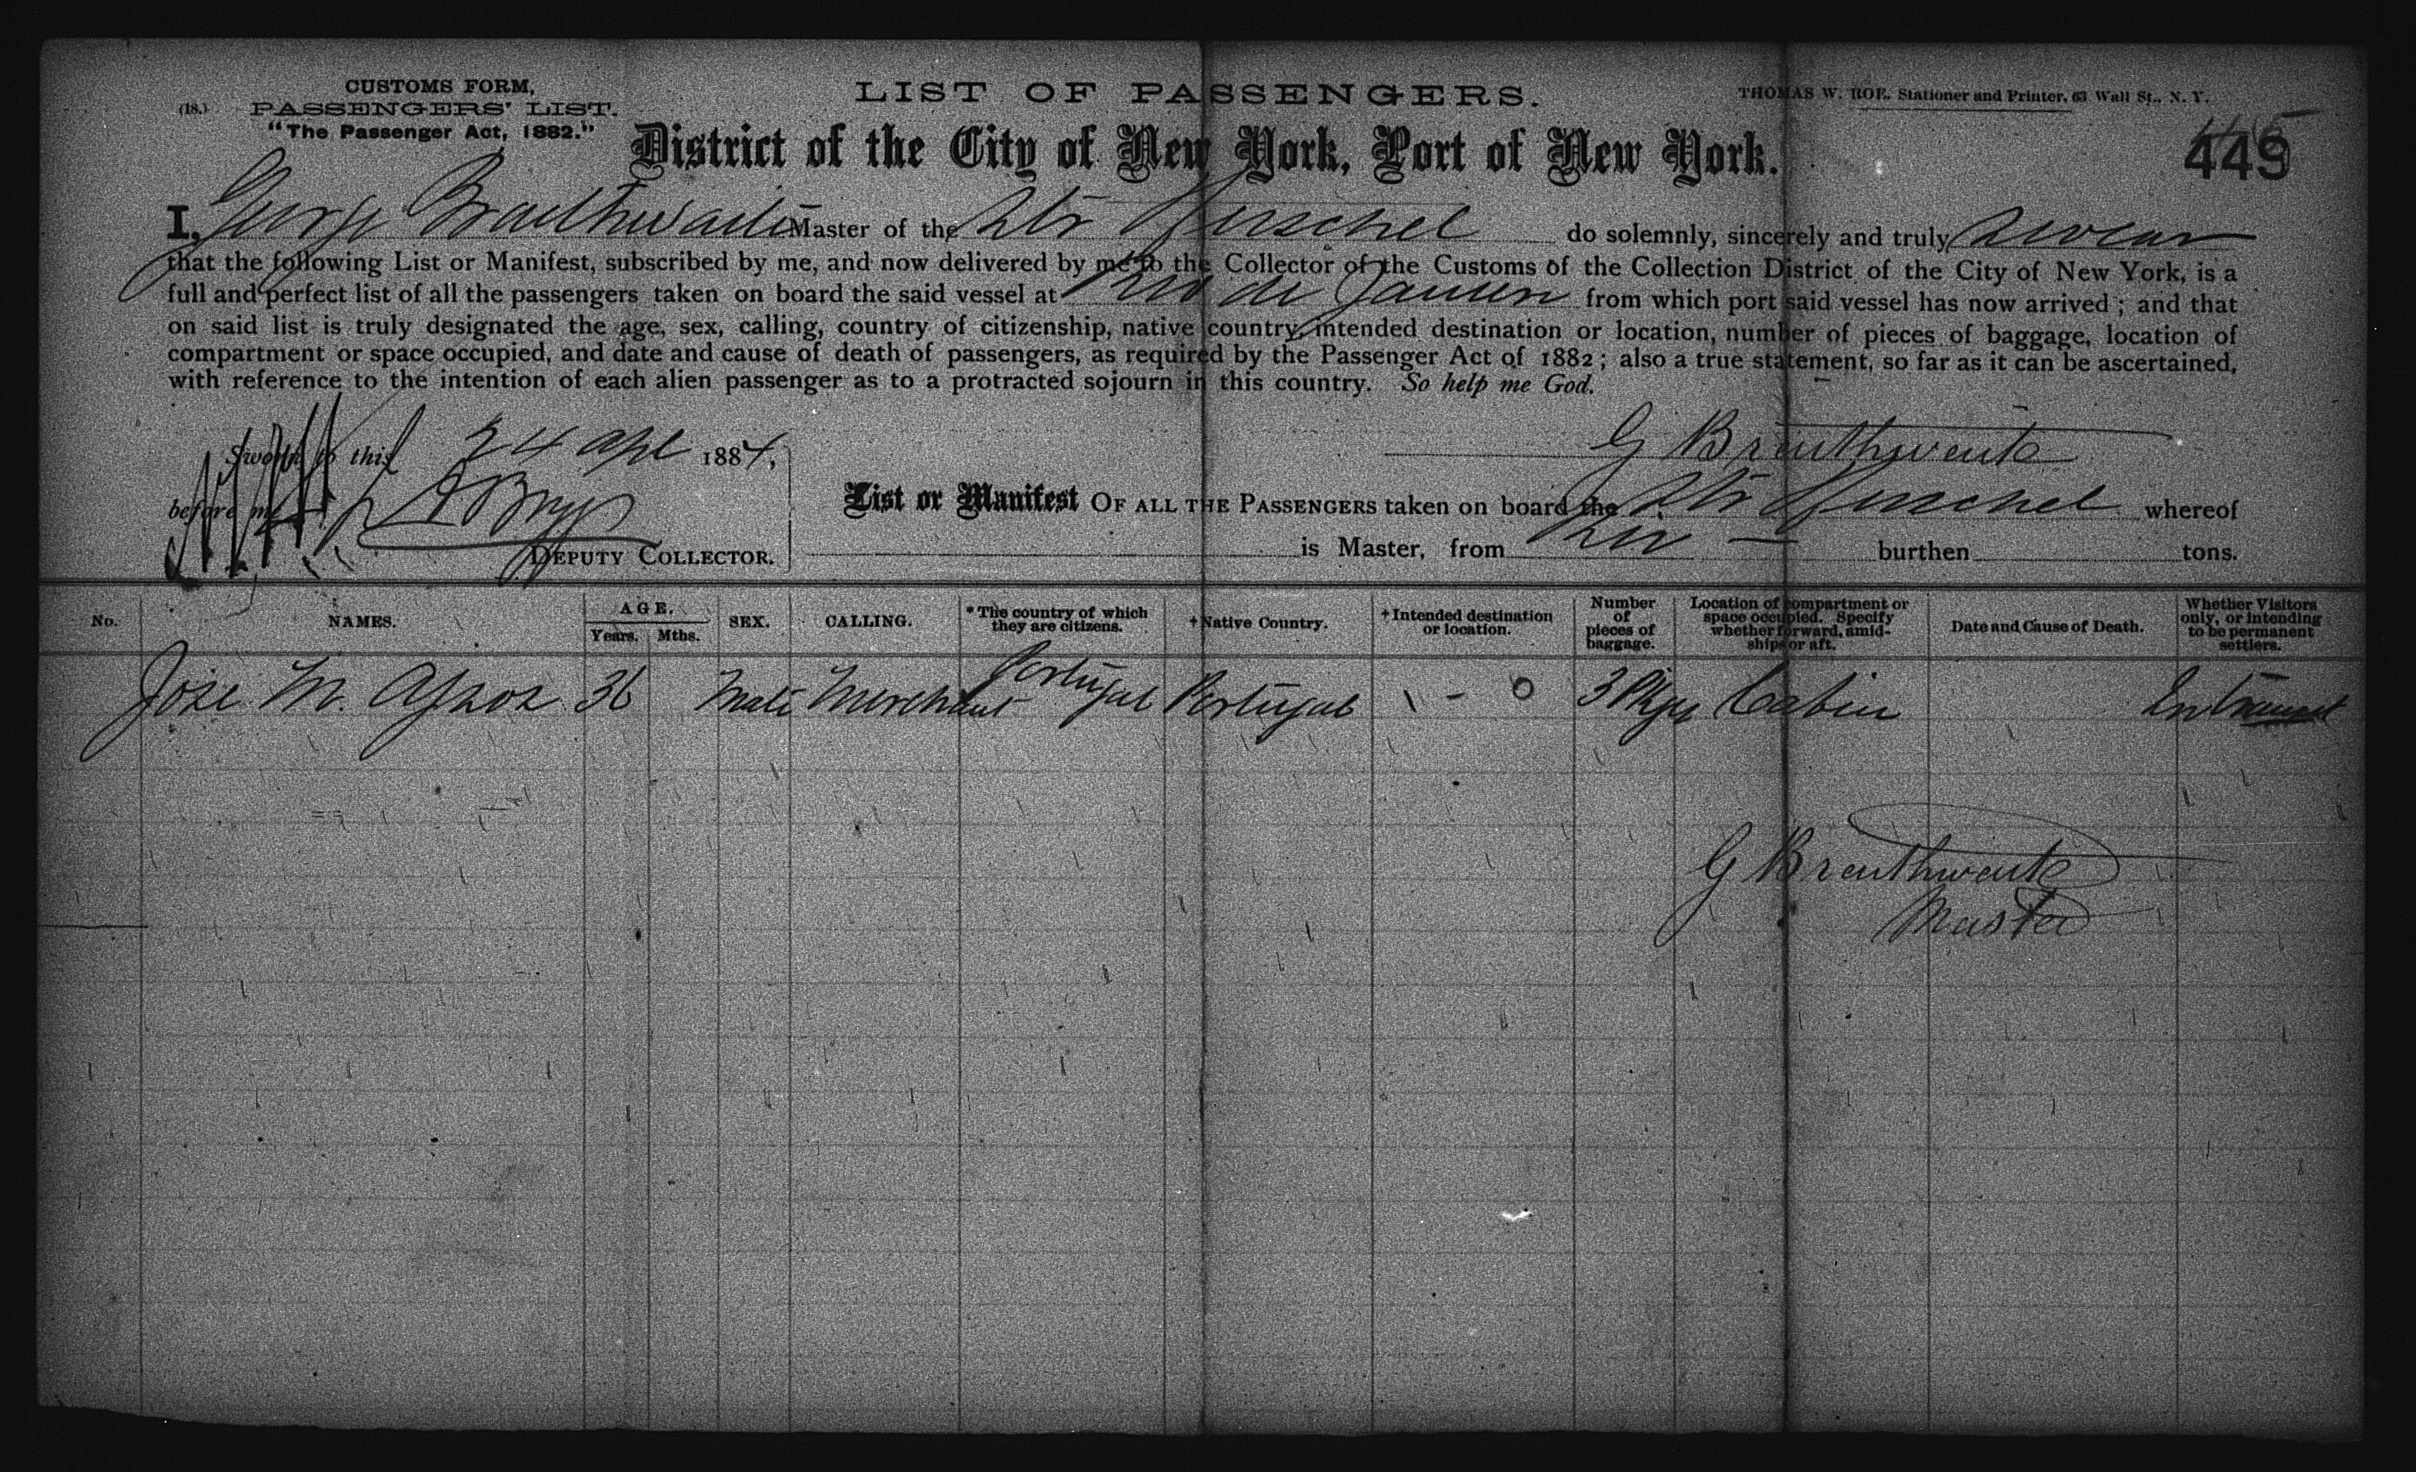 CUSTOMS FORM,
(18.) PASSENGERS' LIST.
"The Passenger Act, 1882."
LIST OF PASSENGERS.
THOMAS W. ROE, Stationer and Printer, 63 Wall St., N. Y.
District of the City of New York, Port of New York.
445
449
I, George Braithwaite Master of the Str Herschel do solemnly, sincerely and truly swear
that the following List or Manifest, subscribed by me, and now delivered by me to the Collector of the Customs of the Collection District of the City of New York, is a
full and perfect list of all the passengers taken on board the said vessel at Rio de Janeiro from which port said vessel has now arrived; and that
on said list is truly designated the age, sex, calling, country of citizenship, native country, intended destination or location, number of pieces of baggage, location of
compartment or space occupied, and date and cause of death of passengers, as required by the Passenger Act of 1882; also a true statement, so far as it can be ascertained,
with reference to the intention of each alien passenger as to a protracted sojourn in this country. So help me God.
Sworn to this 24 Apl 1884,
G Braithwaite
before me
DEPUTY COLLECTOR.
List or Manifest OF ALL THE PASSENGERS taken on board the Str Herschel whereof
is Master, from Rio burthen tons.
No. NAMES. AGE. Years. Mths. SEX. CALLING. *The country of which they are citizens. †Native Country. †Intended destination or location. Number of pieces of baggage. Location of compartment or space occupied. Specify whether forward, amidships or aft. Date and Cause of Death. Whether Visitors only, or intending to be permanent settlers.
Jose M. 36 Male Merchant Portugal Portugal 3 Pkgs Cabin In Transit
G Braithwaite
Master